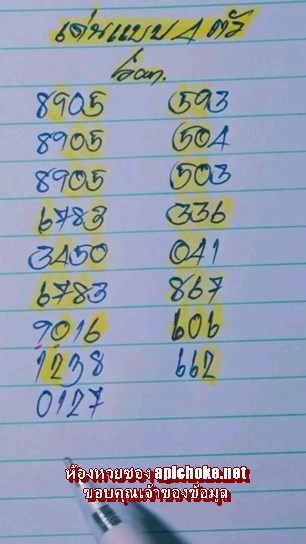 เด่นแบบ 4 ตัว
8905 593
8905 504
8905 503
6783 336
3450 041
6783 867
9016 606
1238 662
0127
ห้องหวยซอง apichoke.net
ขอบคุณเจ้าของข้อมูล